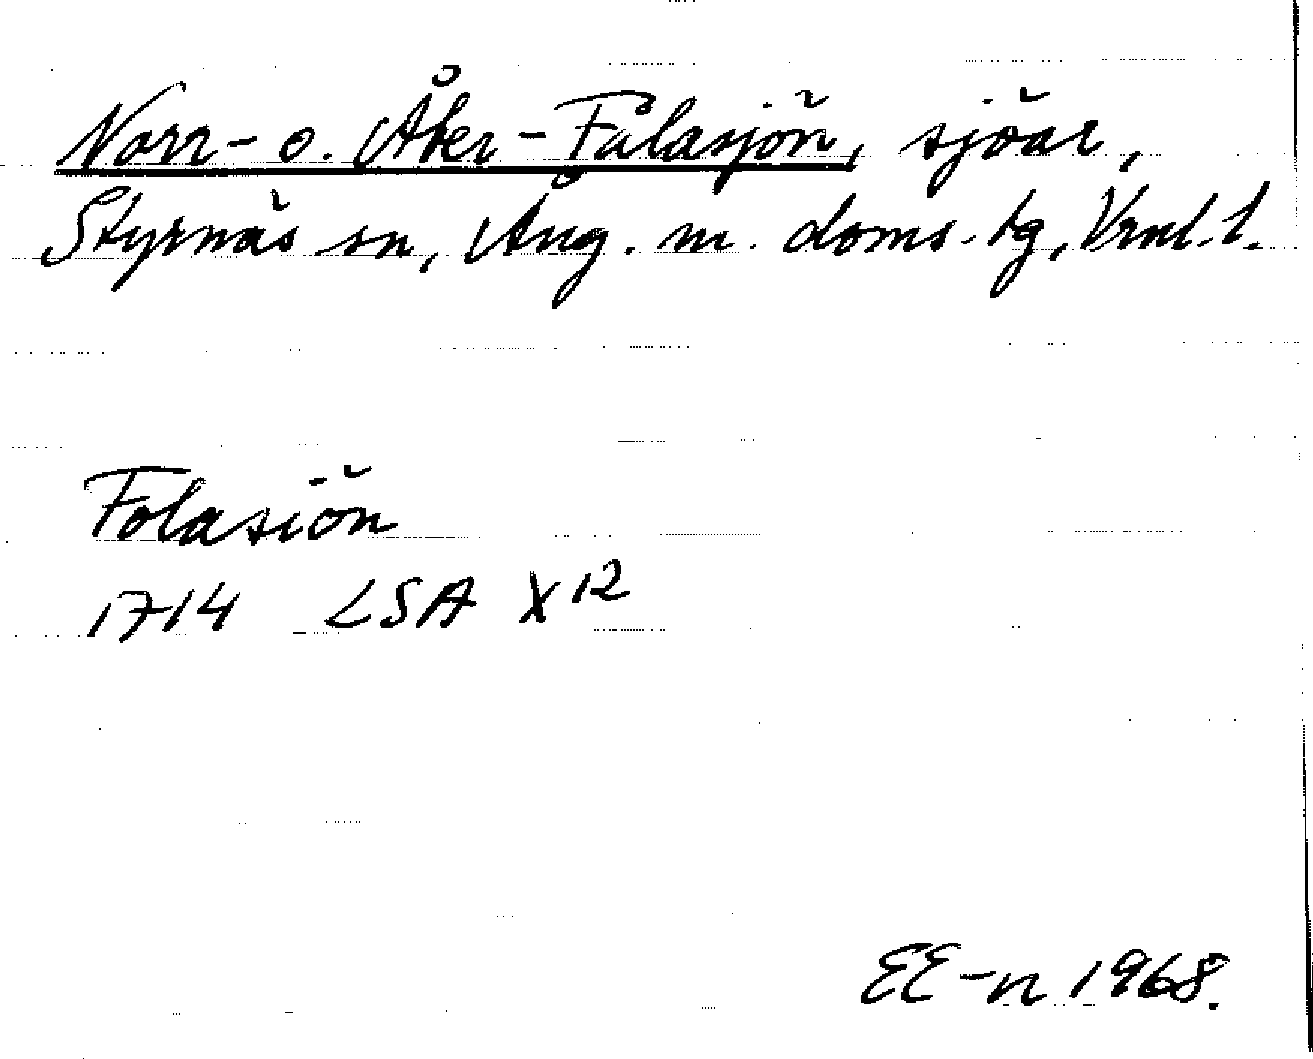 Norr- o. Åker-Fålasjön, sjöar,
Styrnäs sn, Ång. m. doms. tg, Vrnl. l.
Folasiön
1714 LSA X12
EE-n 1968.